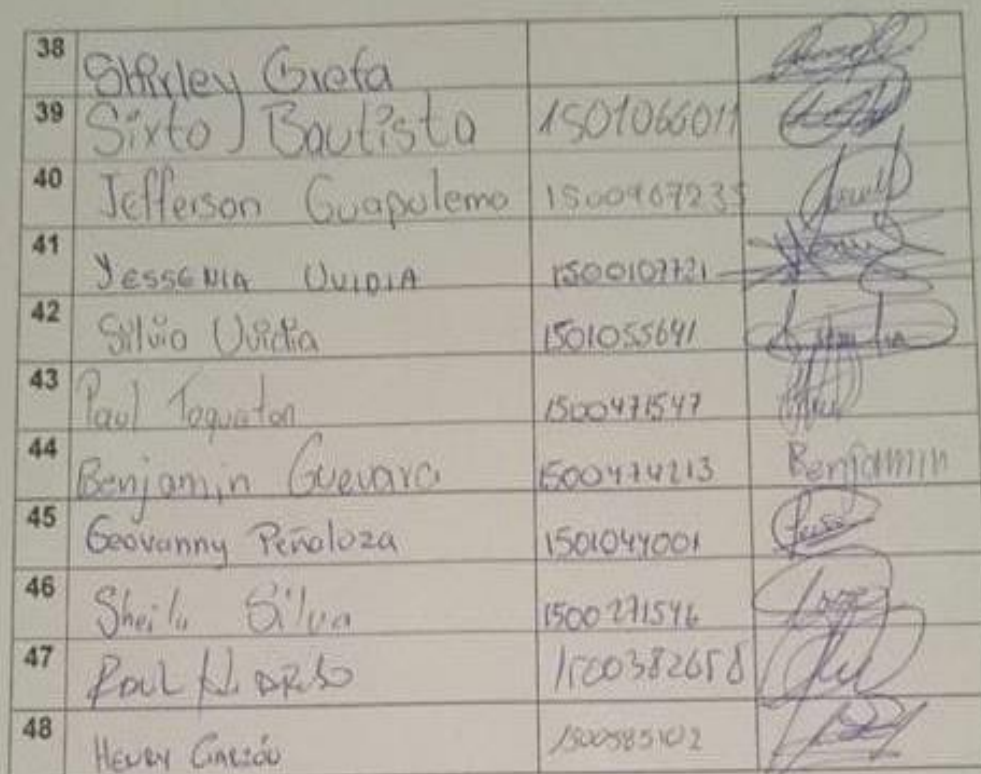 38 Shirley Grefa
39 Sixto J Bautista 1501066011
40 Jefferson Guapulema 1500967235
41 YESSENIA UVIDIA 1500107721
42 Silvia Uvidia 1501055641
43 Paul Toqueton 1500471547
44 Benjamin Guevara 1500474213 Benjamin
45 Geovanny Peñaloza 1501044001
46 Sheila Silva 1500271546
47 RAUL 1500382658
48 HENRY GARZÓN 1500585102